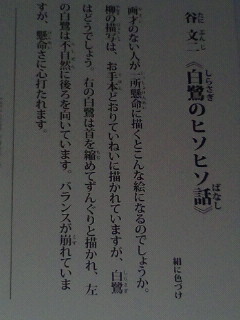 谷文二《白鷺のヒソヒソ話》
たにぶんじ しらさぎ ばなし
絹に色づけ
画才のない人が一所懸命に描くとこんな絵になるのでしょうか。
柳の描写は、お手本どおりていねいに描かれていますが、白鷺
はどうでしょう。右の白鷺は首を縮めてずんぐりと描かれ、左
の白鷺は不自然に後ろを向いています。バランスが崩れていま
すが、懸命さに心打たれます。